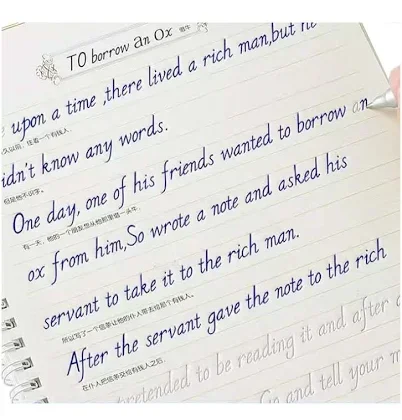 TO borrow an Ox 借牛
upon a time ,there lived a rich man,but he
久以前，住着一个有钱人，
idn't know any words.
但是他不识字。
One day, one of his friends wanted to borrow an
有一天，他的一个朋友想从他那里借一头牛，
ox from him,So wrote a note and asked his
servant to take it to the rich man.
所以写了一个信条让他的仆人带去给那个有钱人。
After the servant gave the note to the rich
在仆人把信条交给有钱人之后，
pretended to be reading it and after a
Go and tell your m